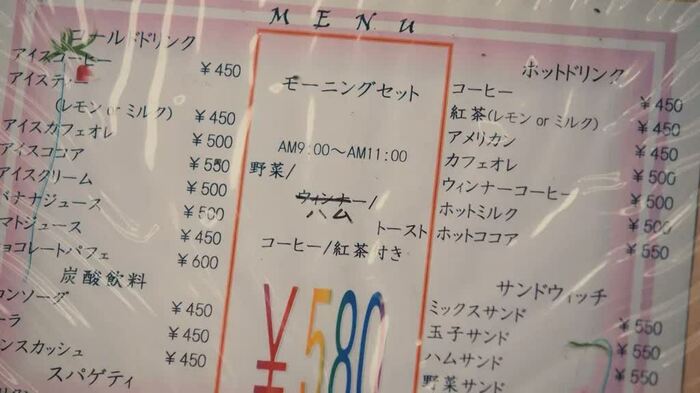 MENU
コールドドリンク
アイスコーヒー ¥450
アイスティー
(レモン or ミルク) ¥450
アイスカフェオレ ¥500
アイスココア ¥550
アイスクリーム ¥500
バナナジュース ¥500
マトジュース ¥450
ョコレートパフェ ¥600
炭酸飲料
ンソーダ ¥450
ーラ ¥450
ンスカッシュ ¥450
スパゲティ
モーニングセット
AM9:00～AM11:00
野菜/
ハム/
トースト
コーヒー/紅茶付き
¥580
ホットドリンク
コーヒー ¥450
紅茶(レモン or ミルク) ¥450
アメリカン ¥450
カフェオレ ¥500
ウィンナーコーヒー ¥500
ホットミルク ¥500
ホットココア ¥550
サンドウィッチ
ミックスサンド ¥550
玉子サンド ¥550
ハムサンド ¥550
野菜サンド